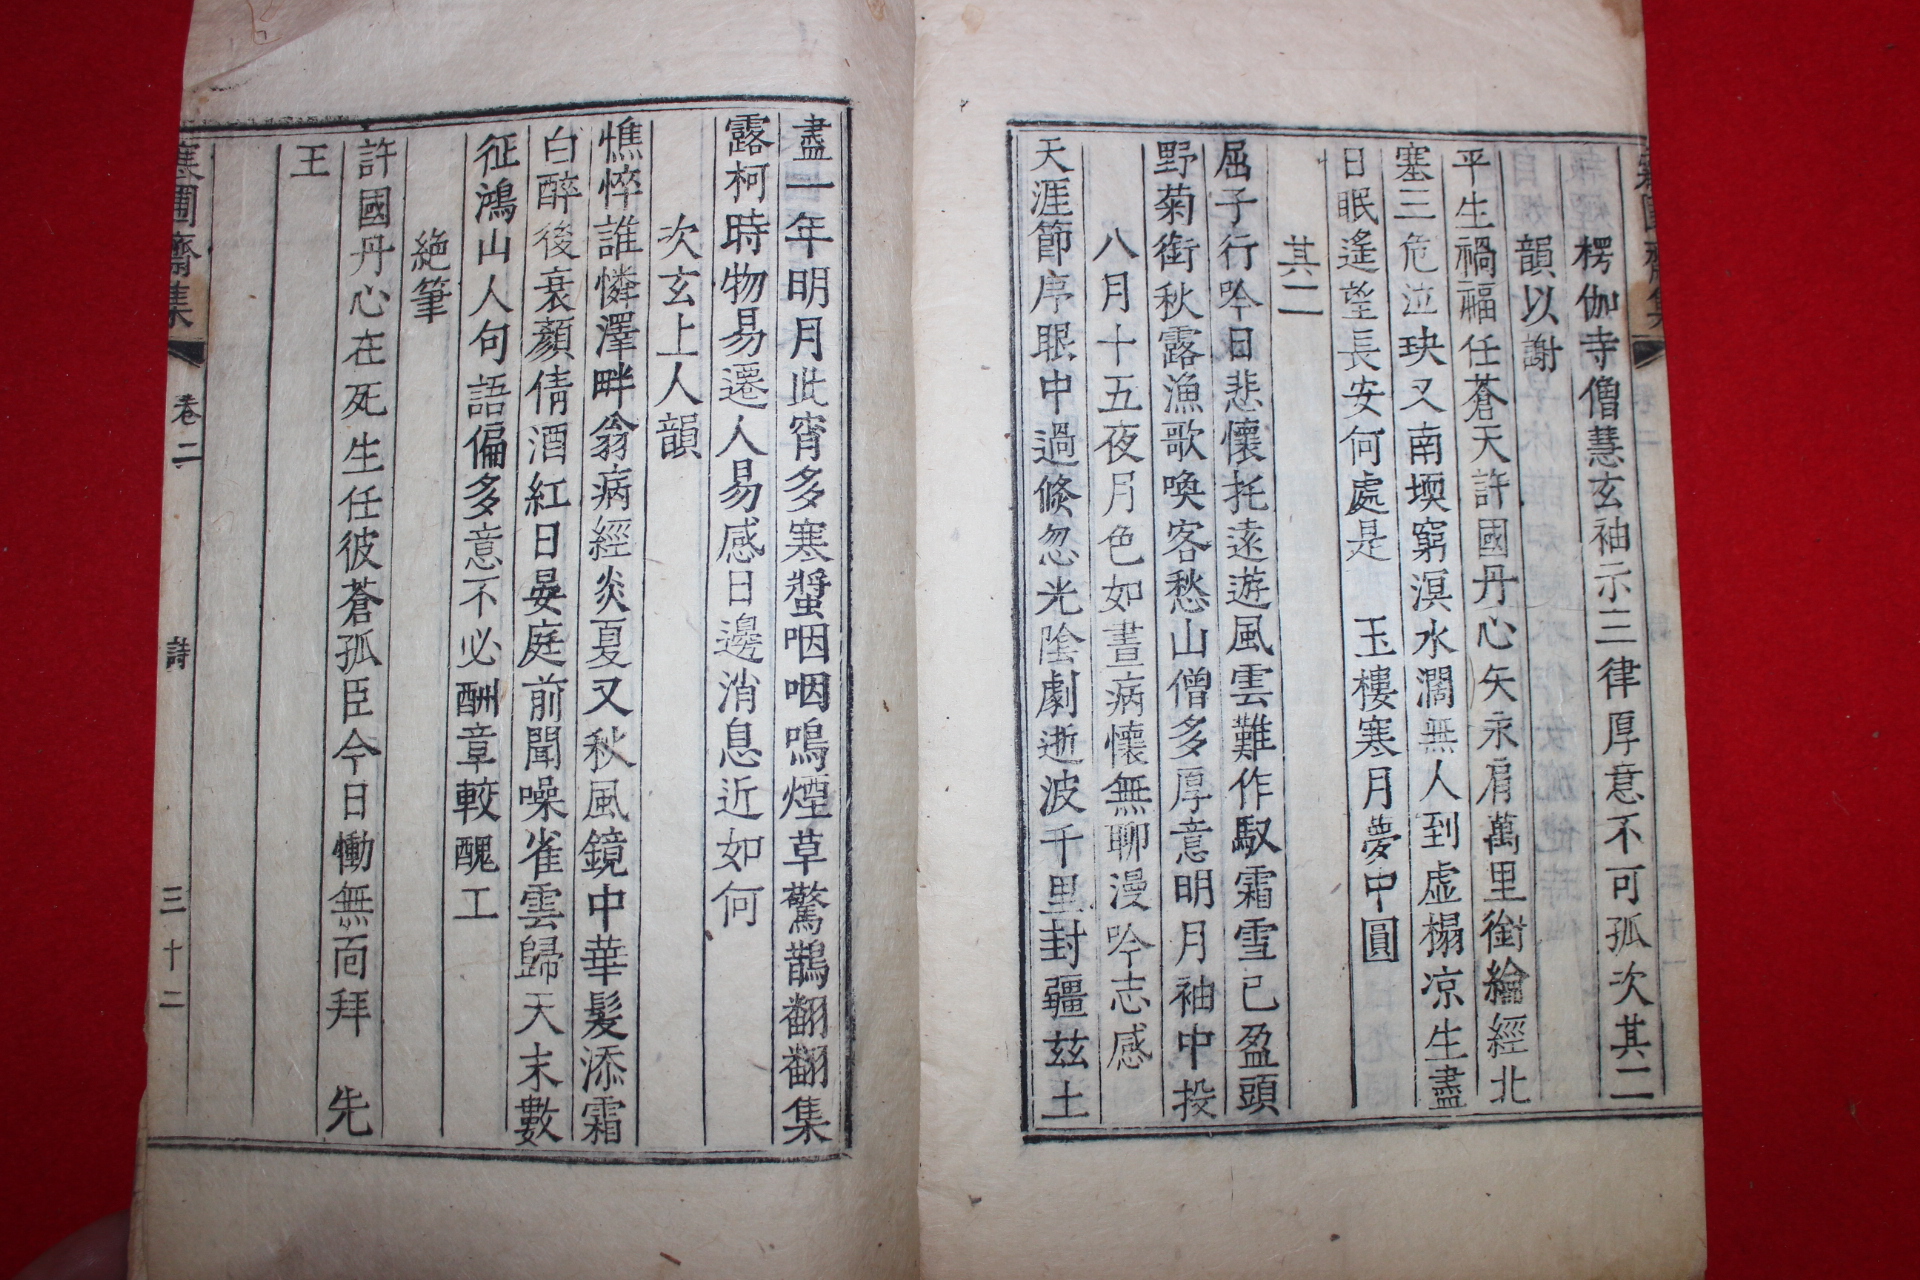 楞伽寺僧慧玄袖示三律厚意不可孤次其二
韻以謝
平生禍福任蒼天許國丹心矢永肩萬里銜綸經北
塞三危泣玦又南堧窮溟水濶無人到虛榻凉生盡
日眠遙望長安何處是 玉樓寒月夢中圓
其二
屈子行吟日悲懷托遠遊風雲難作馭霜雪已盈頭
野菊銜秋露漁歌喚客愁山僧多厚意明月袖中投
八月十五夜月色如晝病懷無聊漫吟志感
天涯節序眼中過倐忽光陰劇逝波千里封疆玆土
盡一年明月此宵多寒螿咽咽鳴煙草驚鵲翻翻集
露柯時物易遷人易感日邊消息近如何
次玄上人韻
憔悴誰憐澤畔翁病經炎夏又秋風鏡中華髮添霜
白醉後衰顏倩酒紅日晏庭前聞噪雀雲歸天末數
征鴻山人句語偏多意不必酬章較醜工
絶筆
許國丹心在死生任彼蒼孤臣今日慟無面拜 先
王
寒圃齋集 卷二 詩 三十二